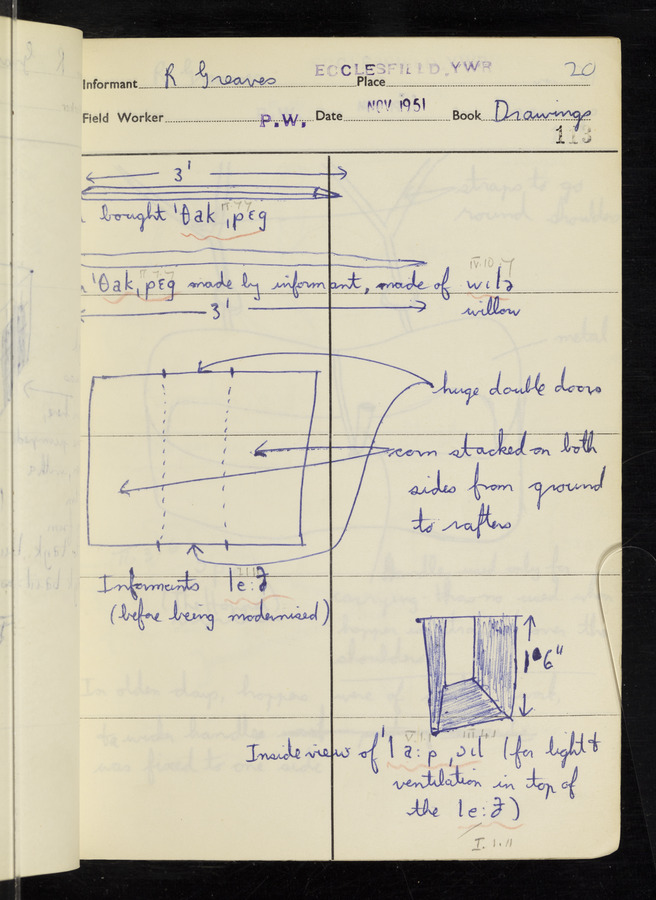 ECCLESFIELD, YWR
20
Informant R Greaves Place
Field Worker P.W. Date NOV 1951 Book Drawings
113
3'
bought ˈθakˌpɛg
ˈθakˌpɛg made by informant, made of wɪlə
IV.10.7
3'
willow
huge double doors
corn stacked on both
sides from ground
to rafters
Informants
(before being modernised)
1' 6"
Inside view of (for light &
ventilation in top of
the
I.1.11